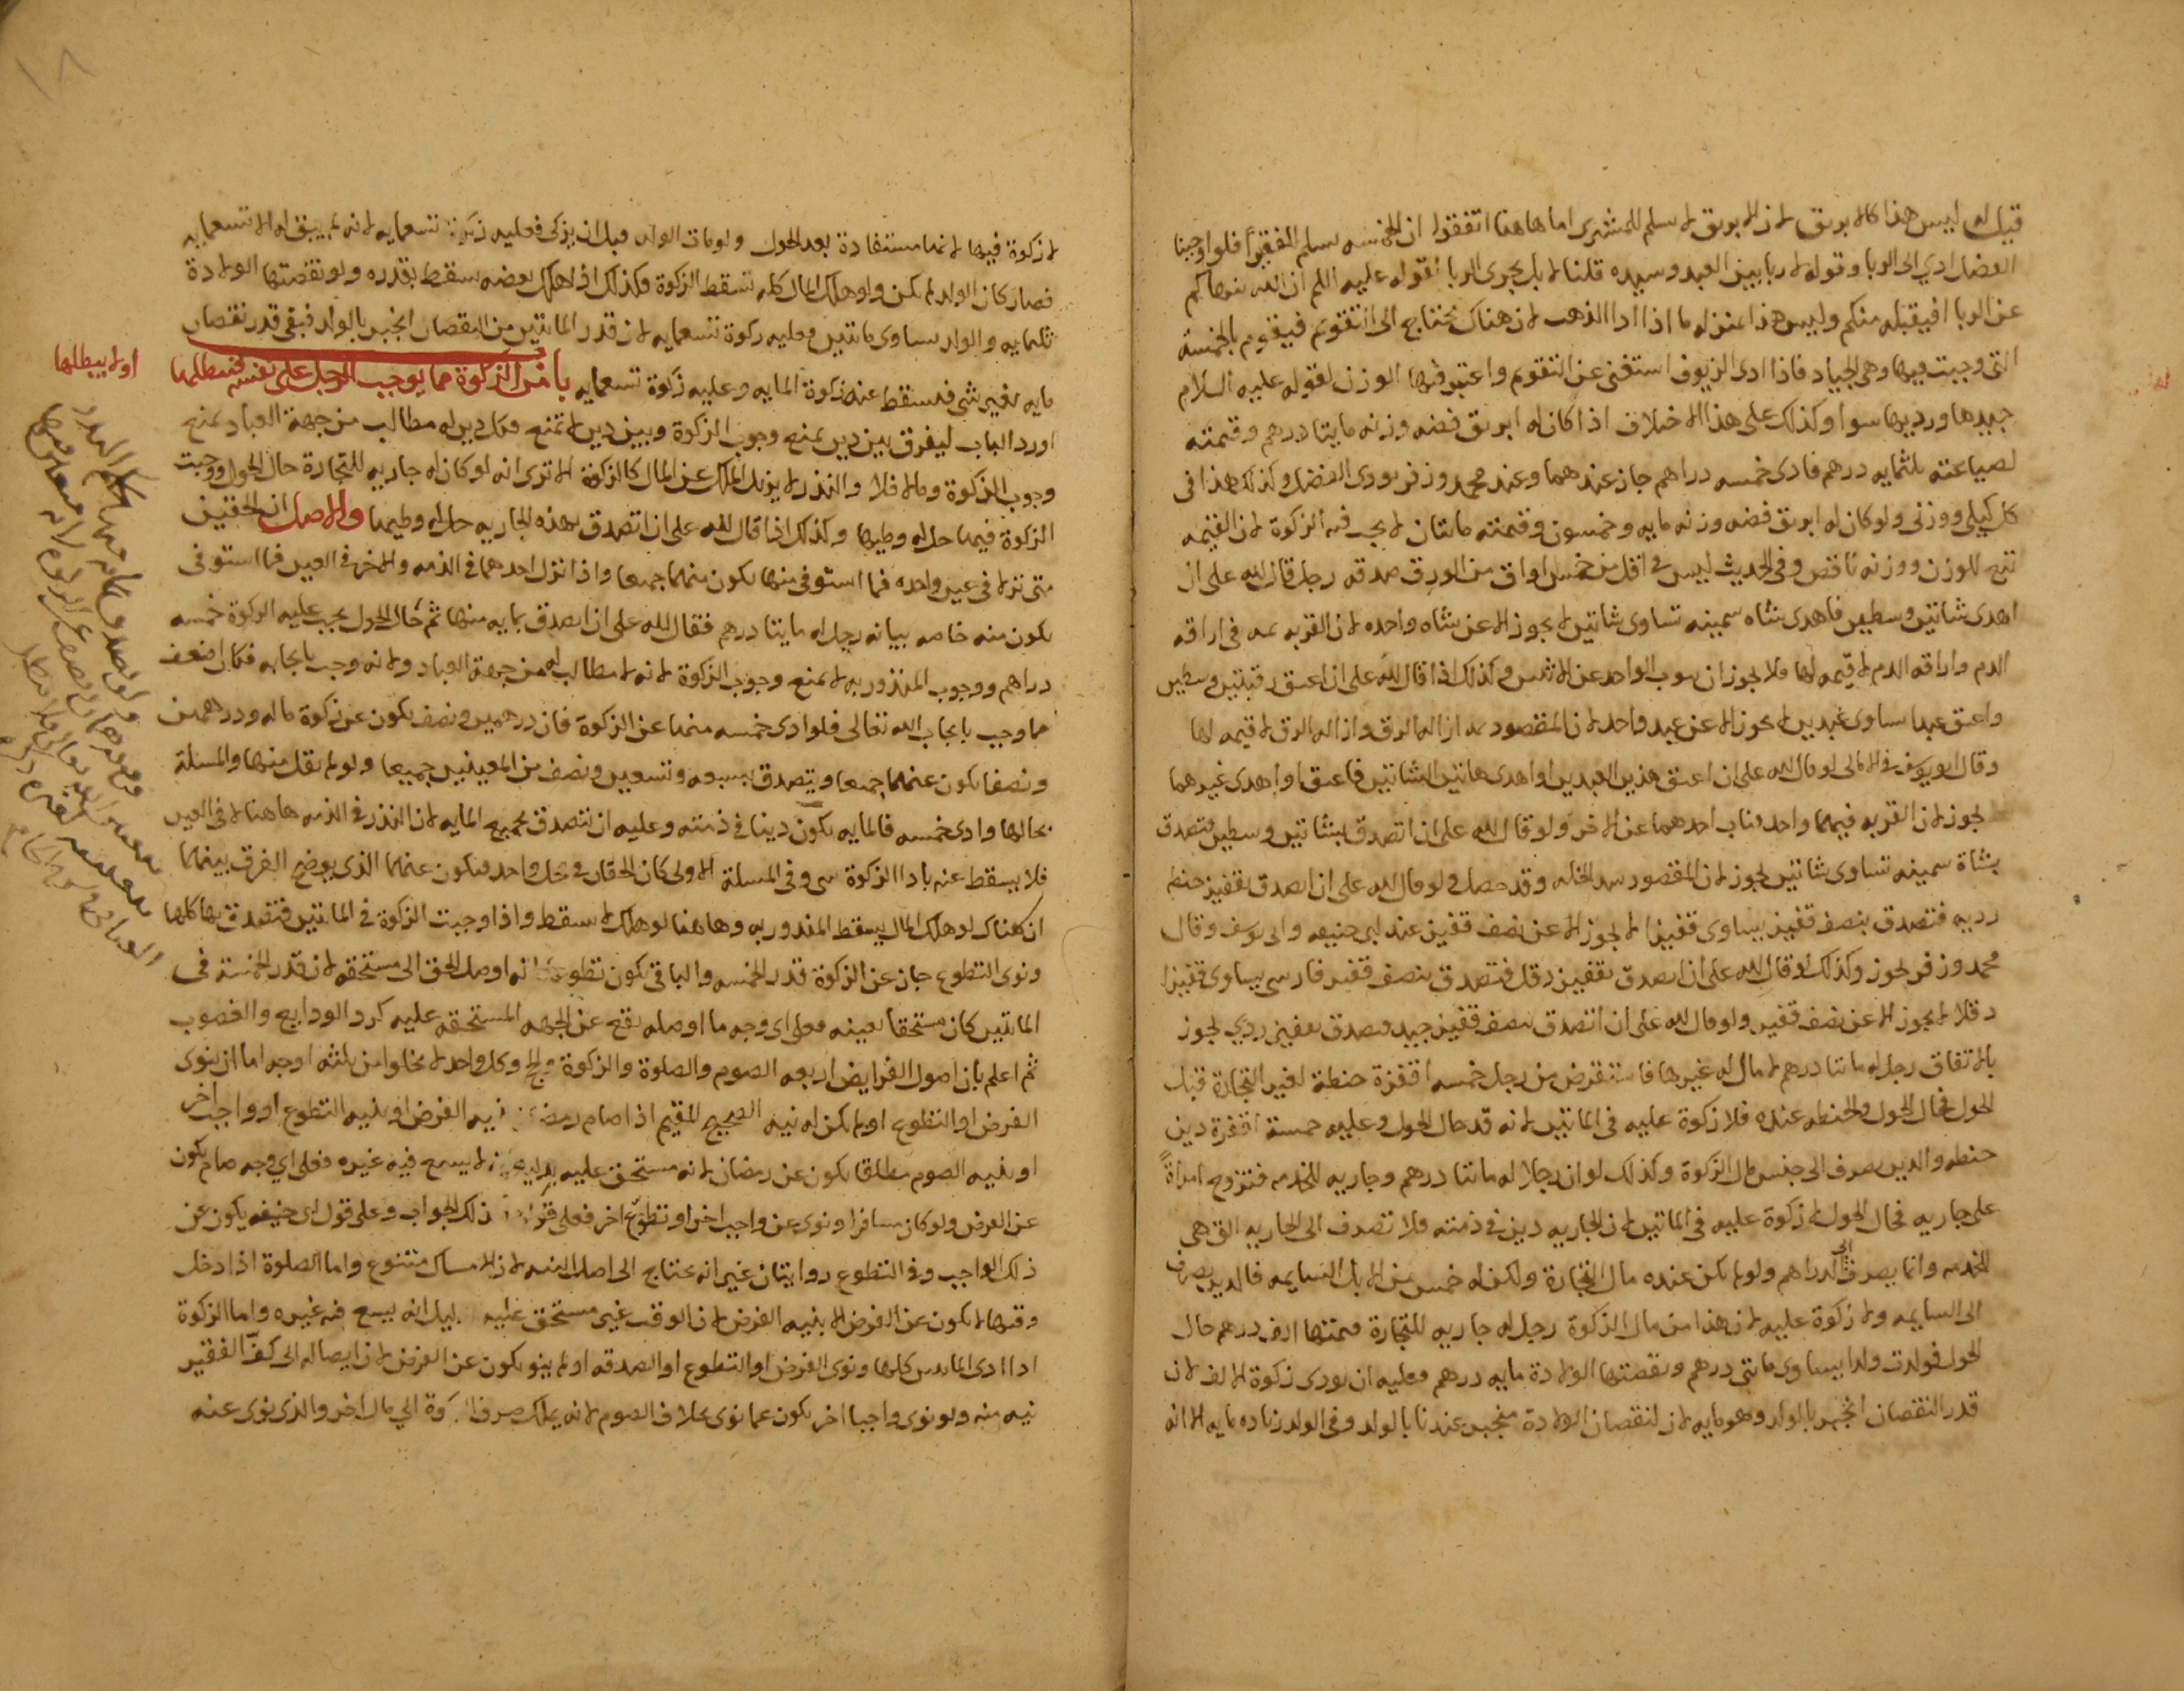 قيل له ليس هذا كالابريق لان الابريق لا يسلم للمشتري اما هاهنا اتفقوا ان الخمسه يسلم للفقير فلو اوجبنا
الفضل ادي الى الربا وقوله لا ربا بين العبد وسيده قلنا لا بل يجرى الربا لقوله عليه السلم ان الله ينهاكم
عن الربا افيقبله منكم وليس هذا بمنزله ما اذا ادا الذهب لان هناك يحتاج الى التقويم فيقوم بالخمسة
التى وجبت فيها وهى الجياد فاذا ادى الزيوف استغنى عن التقويم واعتبر فيها الوزن لقوله عليه السلام
جيدها ورديها سوا وكذلك على هذا الاختلاف اذا كان له ابريق فضه وزنه مايتا درهم وقيمته
لصياغته ثلثمايه درهم فادى خمسه دراهم جاز عندهما وعند محمد وزفر يودى الفضل وكذلك هذا فى
كل كيلى ووزنى ولو كان له ابريق فضه وزنه مايه وخمسون وقيمته مايتان لا يجب فيه الزكوة لان القيمه
تبع للوزن ووزنه ناقص وفى الحديث ليس فى اقل من خمس اواق من الورق صدقه رجل قال لله على ان
اهدى شاتين وسطين فاهدى شاه سمينه تساوى شاتين لا يجوز الا عن شاه واحده لان القربه فى اراقه
الدم واراقه الدم لا قيمه لها فلا يجوز ان ينوب الواحد عن الاثنين وكذلك اذا قال لله على ان اعتق رقبتين وسطين
واعتق عبدا يساوى عبدين لا يجوز الا عن عبد واحد لان المقصود ازاله الرق وازاله الرق لا قيمه لها
وقال ابو يوسف فى الامالى لو قال لله على ان اعتق هذين العبدين او اهدى هاتين الشاتين فاعتق او اهدى غيرهما
يجوز لان القربه فيهما واحد فناب احدهما عن الاخر ولو قال لله على ان اتصدق بشاتين وسطين فتصدق
بشاة سمينه تساوى شاتين يجوز لان المقصود سد الخله وقد حصل ولو قال لله على ان اتصدق بقفيز حنطه
رديه فتصدق بنصف قفيز يساوى قفيزا لا يجوز الا عن نصف قفيز عند ابى حنيفه وابى يوسف وقال
محمد وزفر يجوز وكذلك لو قال لله على ان اتصدق بقفيز دقل فتصدق بنصف قفيز فارسى يساوى قفيزا
دقلا لا يجوز الا عن نصف قفيز ولو قال لله على ان اتصدق بنصف قفيز جيد فتصدق بقفيز ردي يجوز
بالاتفاق رجل له مايتا درهم لا مال له غيرها فاستقرض من رجل خمسه اقفزة حنطة لغير التجارة قبل
الحول فحال الحول والحنطه عنده فلا زكوة عليه فى المايتين لانه قد حال الحول وعليه خمسة اقفزة دين
حنطه والدين يصرف الى جنس مال الزكوة وكذلك لو ان رجلا له مايتا درهم وجاريه للخدمه فتزوج امراةً
على جاريه فحال الحول لا زكوة عليه فى المايتين لان الجاريه دين فى ذمته فلا تصرف الى الجاريه التى هى
للخدمه وانما يصرف الى الدراهم ولو لم يكن عنده مال التجارة ولكن له خمس من الابل السايمه فالدين يصرف
الى السايمه ولا زكوة عليه لان هذا من مال الزكوة رجل له جاريه للتجارة قيمتها الف درهم حال
الحول فولدت ولدا يساوى مايتى درهم ونقصتها الولادة مايه درهم فعليه ان يودى زكوة الالف لان
قدر النقصان انجبر بالولد وهو مايه لان نقصان الولادة ينجبر عندنا بالولد وفى الولد زياده مايه الا انه
لا زكوة فيها لانها مستفادة بعد الحول ولو مات الولد قبل ان يزكى فعليه زكوة تسعمايه لانه لم يبق له الا تسعمايه
فصار كان الولد لم يكن ولو هلك المال كله تسقط الزكوة فكذلك اذا هلك بعضه سقط بقدره ولو نقصتها الولادة
ثلثمايه والولد يساوى مايتين فعليه زكوة تسعمايه لان قدر المايتين من النقصان انجبر بالولد فبقى قدر نقصان
مايه بغير شى فيسقط عنه زكوة المايه وعليه زكوة تسعمايه باب من الزكوة مما يوجب الرجل على نفسه فيبطلها
او لا يبطلها
اورد الباب ليفرق بين دين يمنع وجوب الزكوة وبين دين لا يمنع فكل دين له مطالب من جهة العباد يمنع
وجوب الزكوة وما لا فلا والنذر لا يزيل الملك عن المال كالزكوة الا ترى انه لو كان له جاريه للتجارة حال الحول ووجبت
الزكوة فيها حل له وطيها وكذلك اذا قال لله على ان اتصدق بهذه الجاريه حل له وطيها والاصل ان الحقين
متى نزلا فى عين واحده فما استوفى منها يكون منهما جميعا واذا نزل احدهما فى الذمه والاخر فى العين فما استوفى
يكون منه خاصه بيانه رجل له مايتا درهم فقال لله على ان اتصدق بمايه منها ثم حال الحول يجب عليه الزكوة خمسه
دراهم ووجوب المنذور به لا يمنع وجوب الزكوة لانه لا مطالب له من جهة العباد ولانه وجب بايجابه فكان اضعف
مما وجب بايجاب الله تعالى فلو ادى خمسه منها عن الزكوة فان درهمين ونصف يكون عن زكوة ماله ودرهمين
ونصفا يكون عنهما جميعا ويتصدق بسبعه وتسعين ونصف من المعينين جميعا ولو لم يقل منها والمسئلة
بحالها وادى خمسه فالمايه يكون دينا فى ذمته وعليه ان يتصدق بجميع المايه لان النذر فى الذمه هاهنا لا فى العين
فلا يسقط عنه بادا الزكوة شى وفى المسئلة الاولى كان الحقان فى محل واحد فيكون عنهما الذى يوضح الفرق بينهما
ان هناك لو هلك المال يسقط المنذور به وهاهنا لو هلك لا يسقط واذا وجبت الزكوة فى المايتين فتصدق بها كلها
ونوى التطوع جاز عن الزكوة قدر الخمسه والباقى يكون تطوعا لانه اوصل الحق الى مستحقه لان قدر الخمسة فى
المايتين كان مستحقا بعينه فعلى اى وجه ما اوصله يقع عن الجهه المستحقه عليه كرد الودايع والغصوب
ثم اعلم بان اصول الفرايض اربعه الصوم والصلوة والزكوة والحج وكل واحد لا يخلوا من ثلثه اوجه اما ان ينوى
الفرض او التطوع او لم يكن له نيه الصحيح المقيم اذا صام رمضان بنيه الفرض او بنيه التطوع او واجب اخر
او بنيه الصوم مطلقا يكون عن رمضان لانه مستحق عليه بدليل لا يسع فيه غيره فعلى اي وجه صام يكون
عن الفرض ولو كان مسافرا ونوى عن واجب اخر او تطوع اخر فعلى قولهما ذلك الجواب وعلى قول ابى حنيفه يكون عن
ذلك الواجب وفى التطوع روايتان غير انه يحتاج الى اصل النيه لان الامساك متنوع واما الصلوة اذا دخل
وقتها لا يكون عن الفرض الا بنيه الفرض لان الوقت غير مستحق عليه بدليل انه يسع فيه غيره واما الزكوة
اذا ادى المايتين كلها ونوى الفرض او التطوع او الصدقه او لم ينو يكون عن الفرض لان ايصاله الى كف الفقير
نيه منه ولو نوى واجبا اخر يكون عما نوى بخلاف الصوم لانه يملك صرف الزكوة الى مال اخر والذى نوى عنه